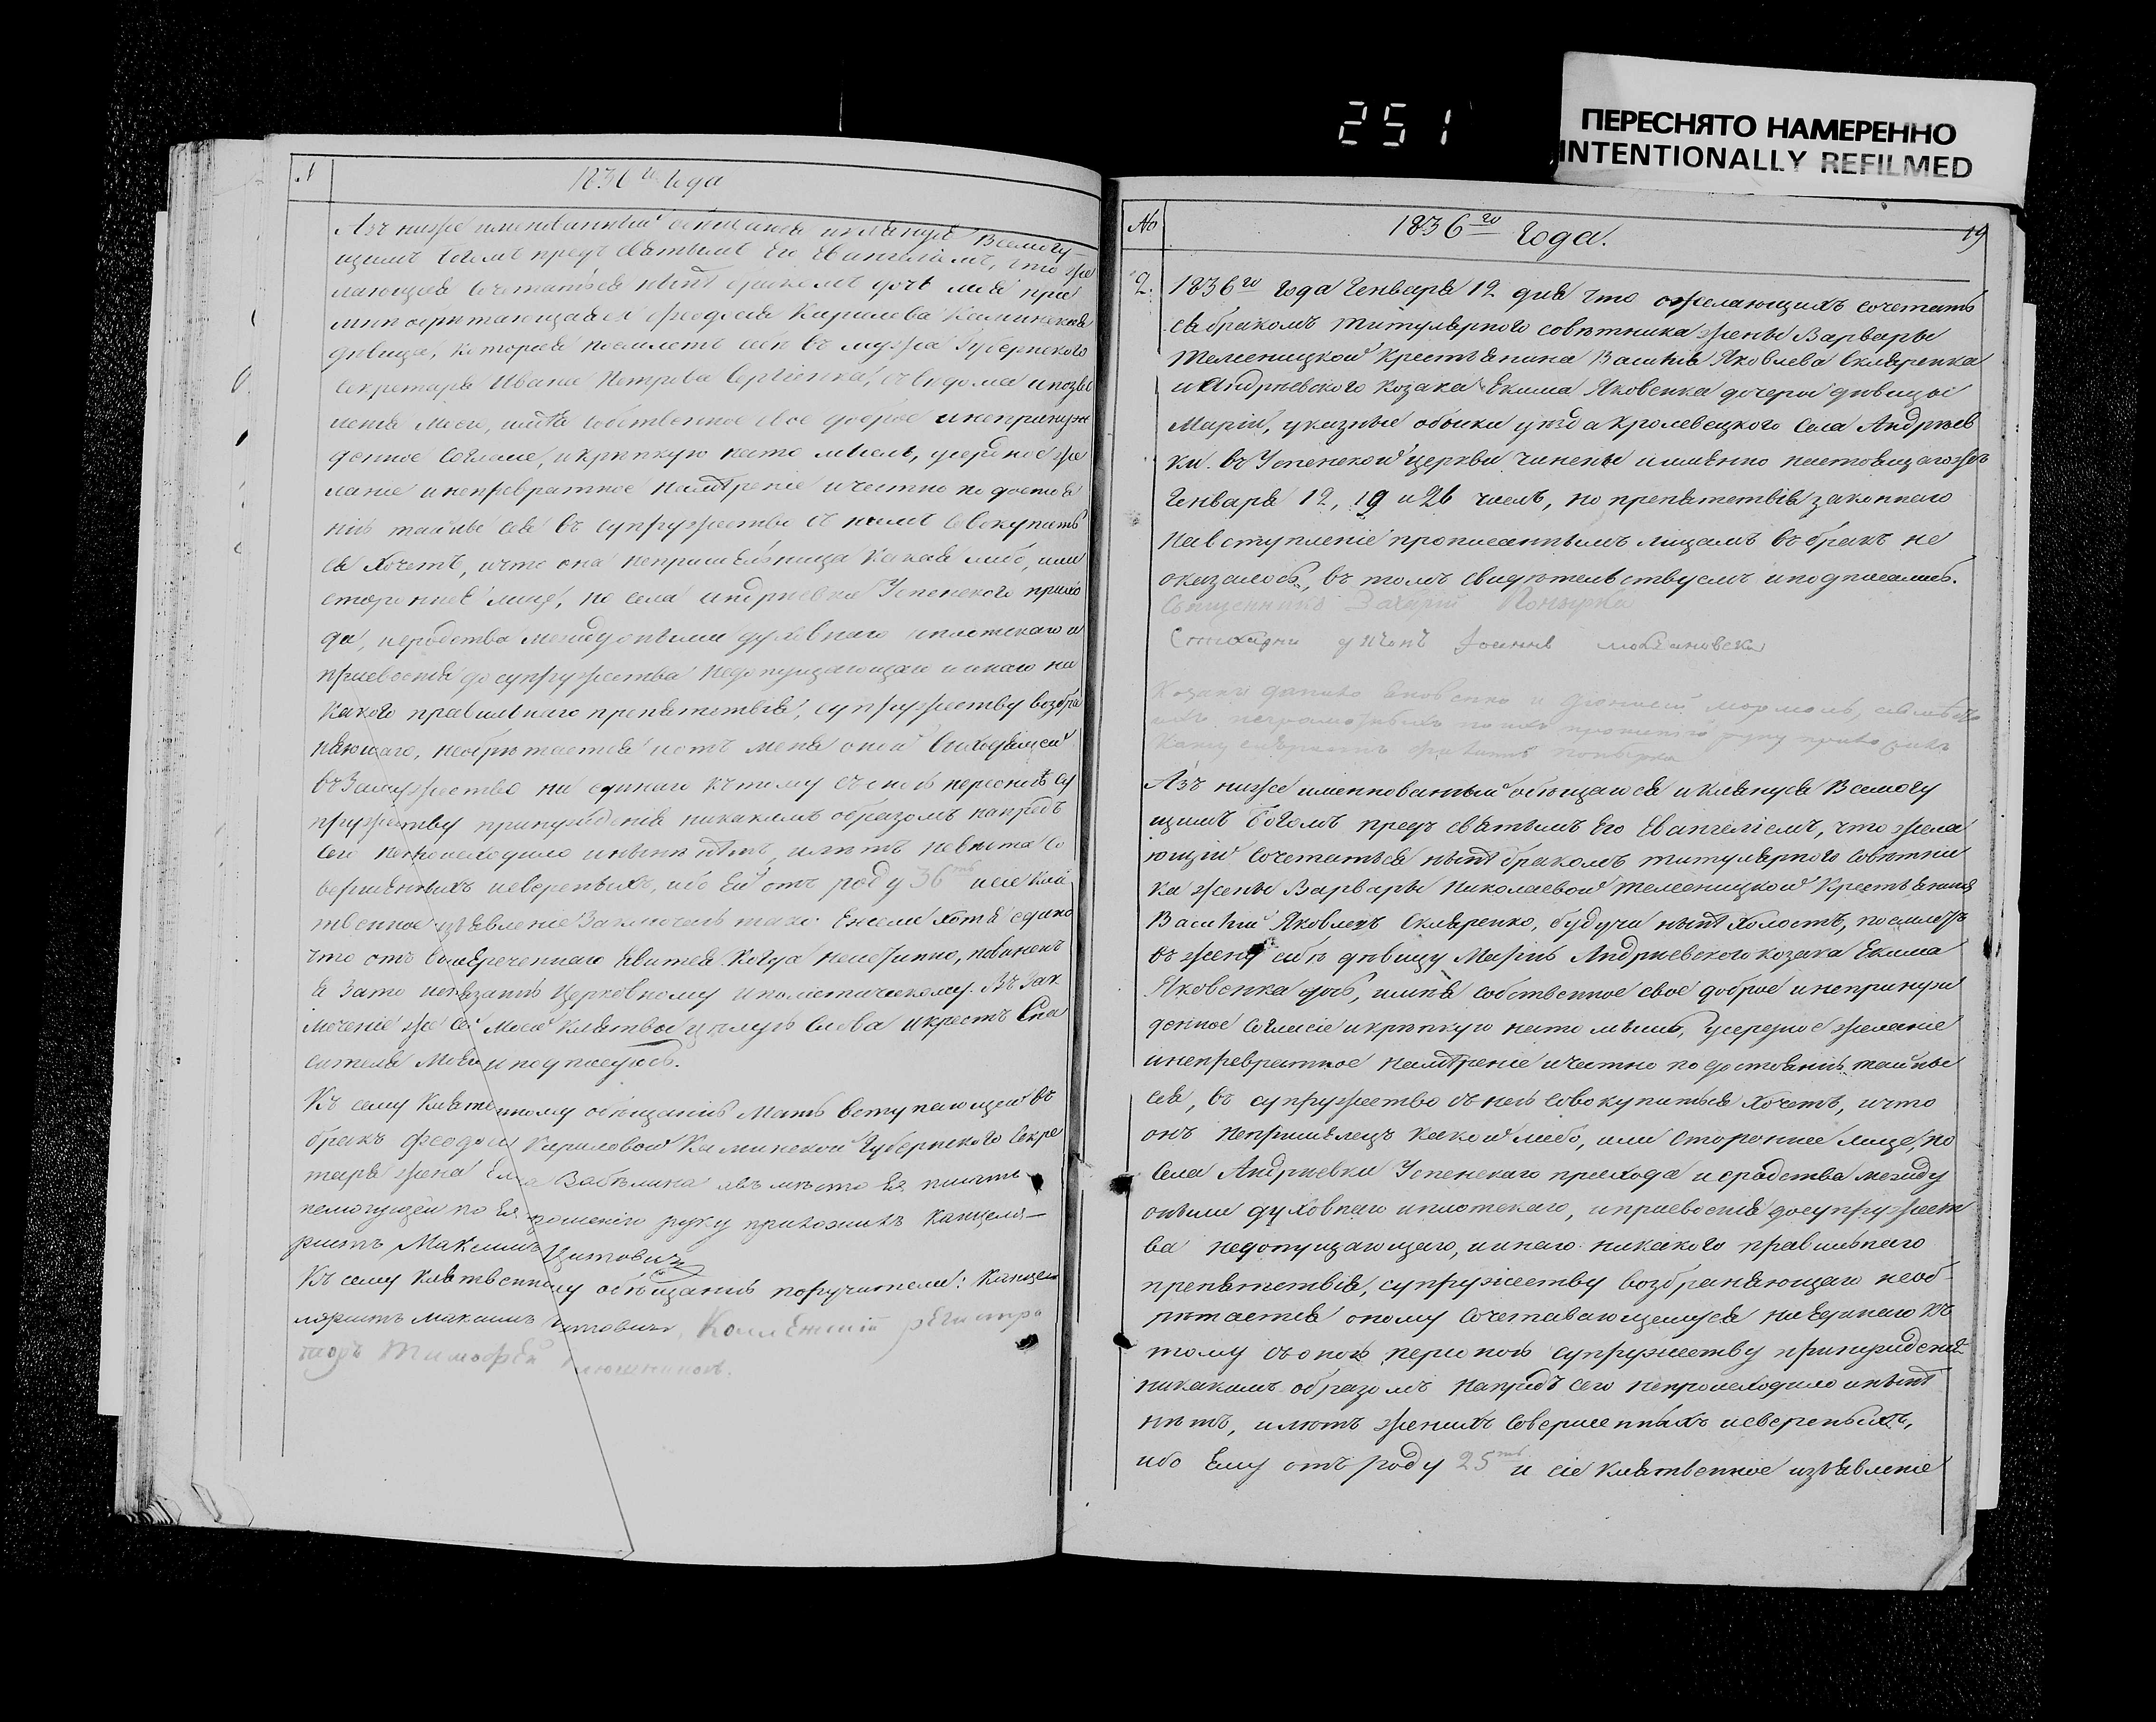 251
ПЕРЕСНЯТО НАМЕРЕННО
INTENTIONALLY REFILMED
1836 го Года
Азъ ниже именованный обещаюся и кленуся Всемогу
щимъ Богомъ предъ святымъ Его Евангелiемъ, что же
лающая сочетаться нынѣ бракомъ дочь моя при
мнѣ Кирилова Каминская
дѣвица, которая посилаетъ себѣ въ мужа Губернского
Секретаря Ивана Петрова съ вѣдома и позво
ленiя моего, имѣя собственное свое доброе и непринуж
денное согласiе, и крѣпкую на то мысль, усердное же
ланiе и непревратное намѣренiе и честно по достоя
нiю тайны сея въ супружество съ нимъ совокупить
ся хочетъ, и что она непришѣлница какая либо, или
стороннее лице, но села Андрѣевки Успенского прихо
да, и средства между оными духовнаго и плотскаго и
присвоенiя до супружества недопущающаго и инаго ни
какого правилнаго препятствiя, супружеству возбра
няющаго, необрѣтается и отъ мене оной сиходящей
въ Замужество ни единаго къ тому съ оною персоною су
пружеству принужденiя никакимъ образомъ напредь
сего непроисходило и нынѣ нѣтъ, имѣетъ невѣста со
вершенныхъ и сверенныхъ, ибо ей отъ роду 36 ть и сiе кля
твенное изъявленiе Заключаю тако: Ежели хотя едино
что отъ вишереченнаго явится когда неистинно, повиненъ
я Зато Церковному и политическому. Въ Зак
люченiе же сей моей клятвы цѣлую Слова и крестъ Спа
сителя Моего и подписуюсь.
Къ сему Клятвенному обѣщанiю Мать вступающей въ
бракъ Феодосiи Кириловой Каминской Губернского Секре
таря жена а въ мѣсто ея писать
немогущей по ея прошенiю руку приложилъ Канцеля-
ристъ Максимъ Цитовичъ
Къ сему Клятвенному обѣщанiю поручители: Канцел
ляристъ Максимъ Цитовичъ. Коллежскiй регистра
торъ Тимофей
№ 1836 го Года. 19
2. 1836 го Года Генваря 12 дня что ожелающихъ сочетать
ся бракомъ титулярного совѣтника жены Варвары
Телесницкой Крестьянина Василiя Яковлева Скляренка
и Андрѣевского козака Екима Яковенка дочери дѣвицы
Марiи, указные обыски уѣзда Кролевецкого Села Андрѣев
ки. въ Успенской церкви чинены и именно настоящаго жъ
Генваря 12, 19 и 26 числъ, но препятствiя законнаго
навступленiе прописаннымъ лицамъ въ бракъ не
оказалось, въ томъ свидѣтельствуемъ и подписались.
Священникъ Захарiй Понырко
Стихарни дячокъ Iоаннъ
Козаки Данило Яковенко и
неграмотныхъ по ихъ прошенiю руку приложилъ
Азъ ниже именнованный обѣщаюся и клянуся Всемогу
щимъ Богомъ предъ святымъ Его Евангелiемъ, что жела
ющiй Сочетаться нынѣ бракомъ титулярного Совѣтни
ка жены Варвары Николаевой Телесницкой Крестьянинъ
Василiй Яковлевъ Скляренко, будучи нынѣ Холостъ, посилаетъ
въ жену себѣ дѣвицу Марiю Андрѣевского козака Екима
Яковенка дочь, имѣя собственное свое доброе и непринуж
денное согласiе и крѣпкую на то мысль, усерзное желанiе
и непревратное намѣренiе и честно по достоянiю тайны
сея, въ супружество съ нею совокупиться хочетъ, и что
онъ непришѣлецъ какой либо, или стороннее лице, но
села Андрѣевки Успенскаго прихода и средства между
оными духовнаго и плотскаго, и присвоенiя до супружест
ва недопущающаго, и инаго никакого правилнаго
препятствiя, супружеству возбраняющаго необ-
рѣтается оному Сочетавающемуся ни единаго къ
тому съ оною персоною супружеству принужденiя
никакимъ образомъ напредь сего непроисходило и нынѣ
нѣтъ, имѣетъ женихъ Совершенныхъ и сверенныхъ,
ибо Ему отъ роду 25 ть и сiе клятвенное изъявленiе